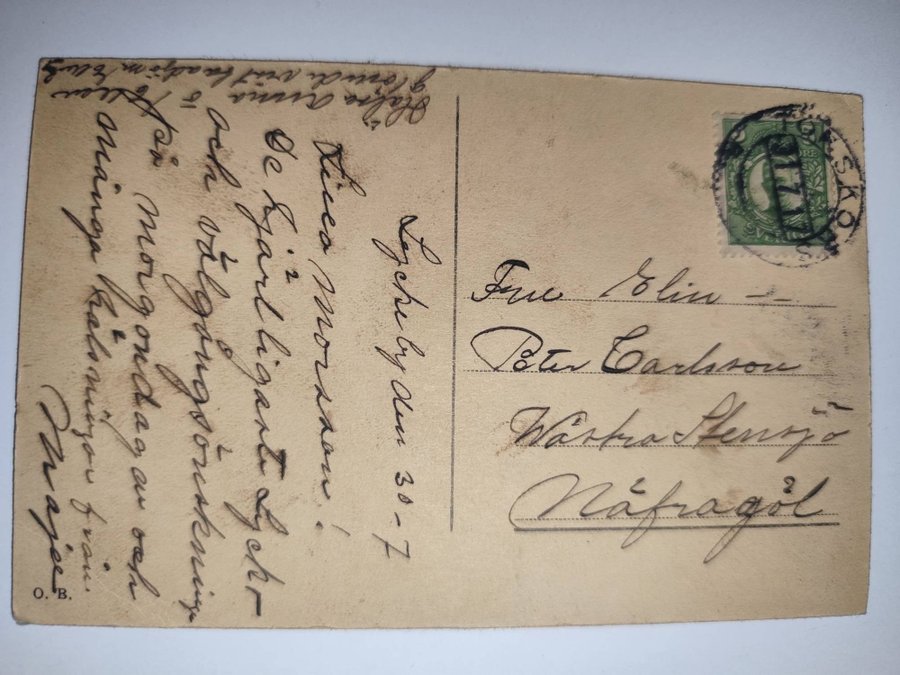 Lyckeby den 30-7
Kära Morsan!
De hjärtligaste Lyck-
och välgångsönskninga
på morgondagen och
många hälsningar från
Maja
Hälsa Anna
Fru Elin
Peter Carlsson
Wästra Stensjö
Näfragöl
31.7.17
O. B.